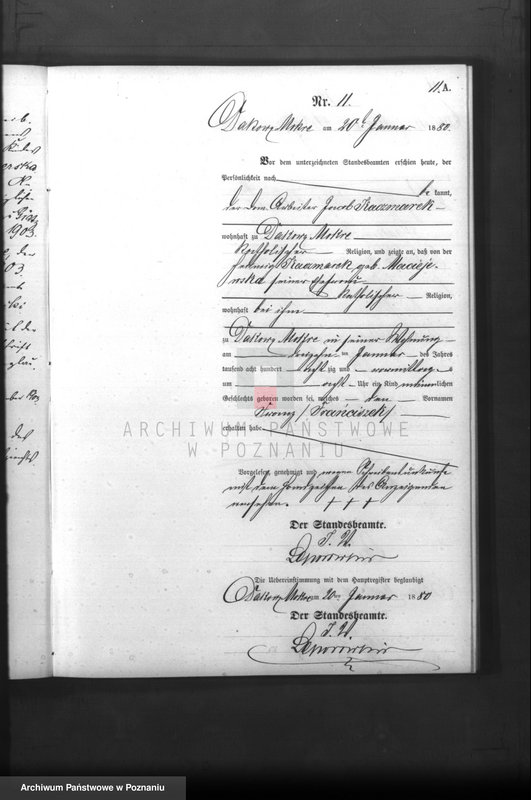 11.A.
Nr. 11.
Dakowy Mokre am 20ten Januar 1880.
Vor dem unterzeichneten Standesbeamten erschien heute, der
Persönlichkeit nach
be kannt,
der Arbeiter Jacob Kaczmarek
wohnhaft zu Dakowy Mokre
katholischer Religion, und zeigte an, daß von der
Hedwig Kaczmarek geb. Macieje-
wska seiner Ehefrau
katholischer Religion,
wohnhaft bei ihm
zu Dakowy Mokre in seiner Wohnung
am dreizehn ten Januar des Jahres
tausend acht hundert acht zig und vormittags
um acht Uhr ein Kind männlichen
Geschlechts geboren worden sei, welches den Vornamen
Franz /Franciszek/
erhalten habe.
ARCHIWUM PAŃSTWOWE
W POZNANIU
Vorgelesen, genehmigt und wegen Schreibensunkunde
mit dem Handzeichen des Anzeigenden
versehen. + + +
Der Standesbeamte.
I. V.
Die Uebereinstimmung mit dem Hauptregister beglaubigt
Dakowy Mokre am 20ten Januar 1880
Der Standesbeamte.
I. V.
Archiwum Państwowe w Poznaniu